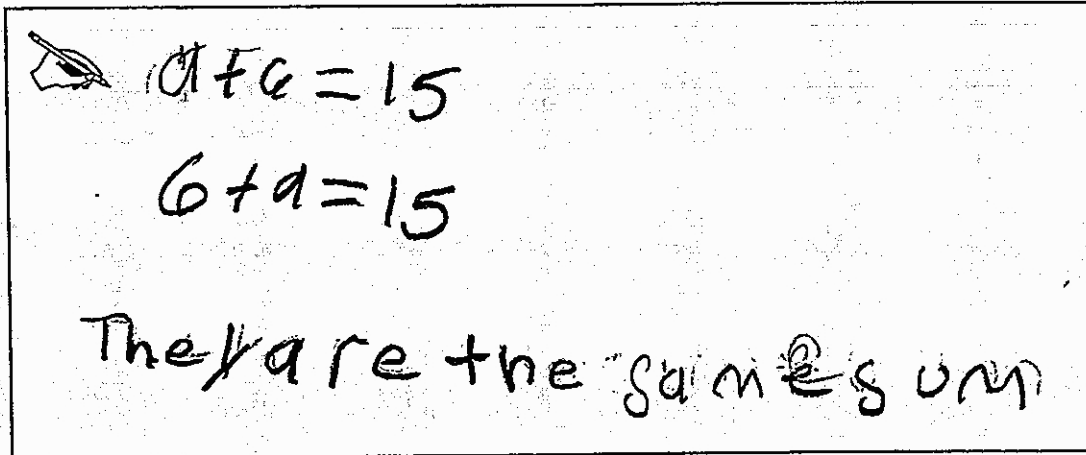 9+6=15
6+9=15
They are the same sum